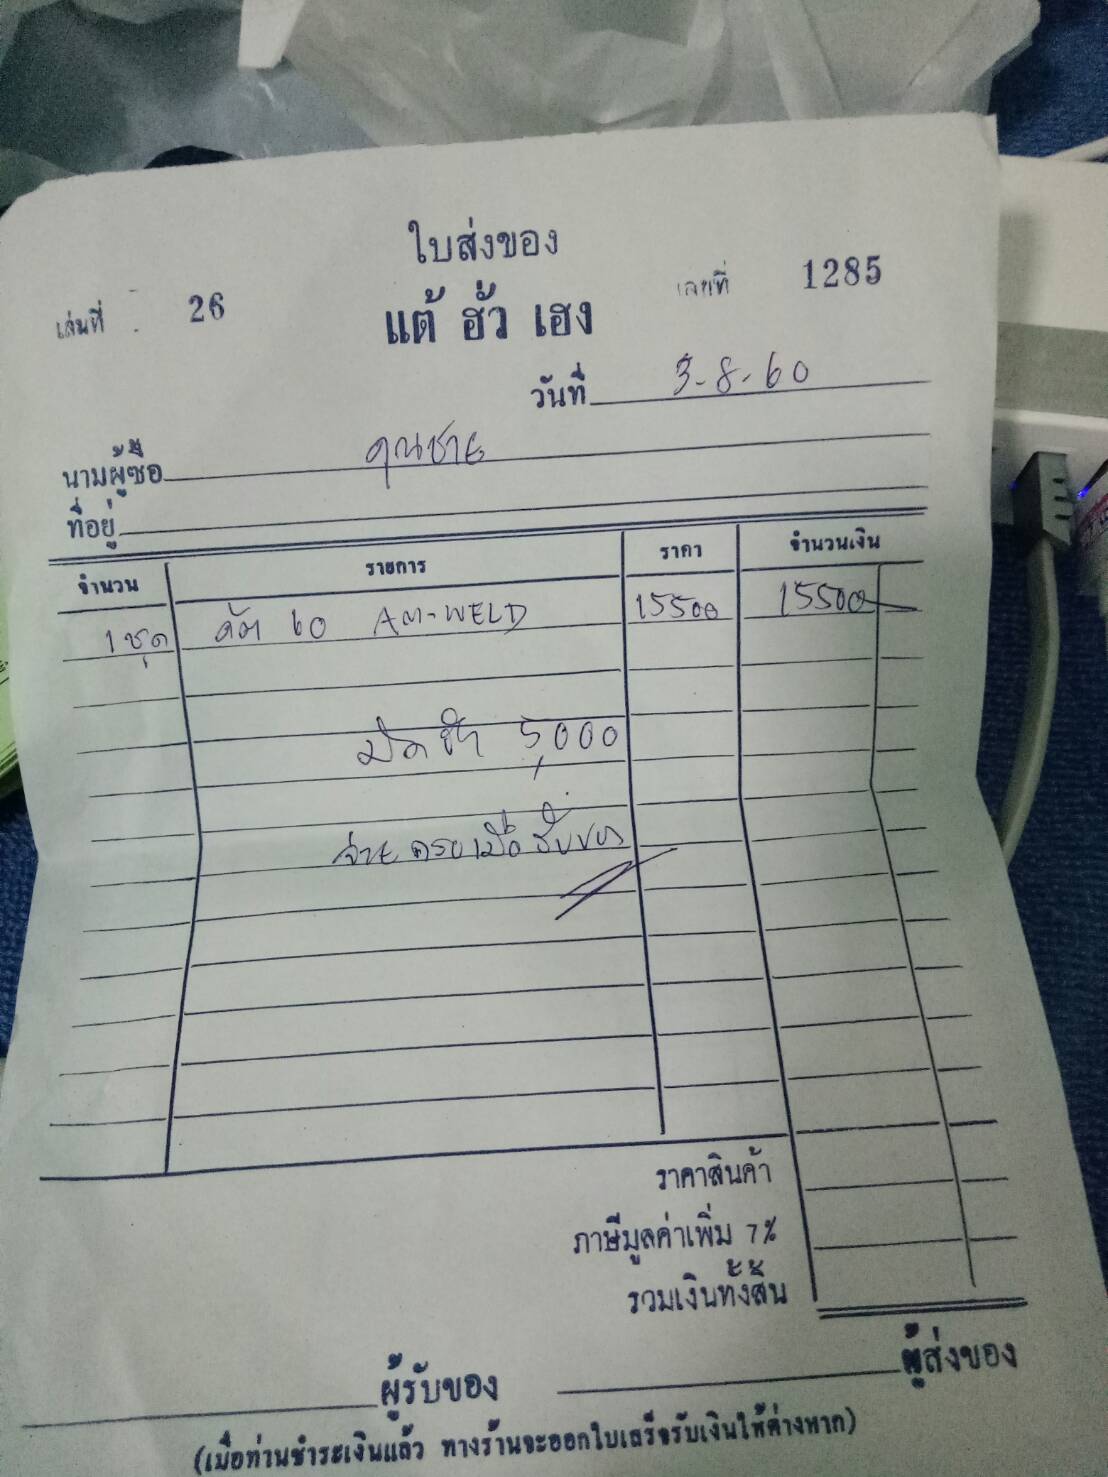 ใบส่งของ
เล่มที่ 26 เลขที่ 1285
แต้ ฮั่ว เฮง
วันที่ 3-8-60
นามผู้ซื้อ คุณชาย
ที่อยู่
จำนวน รายการ ราคา จำนวนเงิน
1 ชุด คัต 60 AM-WELD 15500 15500
มัดจำ 5,000
จ่ายครบเมื่อรับของ
ราคาสินค้า
ภาษีมูลค่าเพิ่ม 7%
รวมเงินทั้งสิ้น
ผู้รับของ ผู้ส่งของ
(เมื่อท่านชำระเงินแล้ว ทางร้านจะออกใบเสร็จรับเงินให้ต่างหาก)